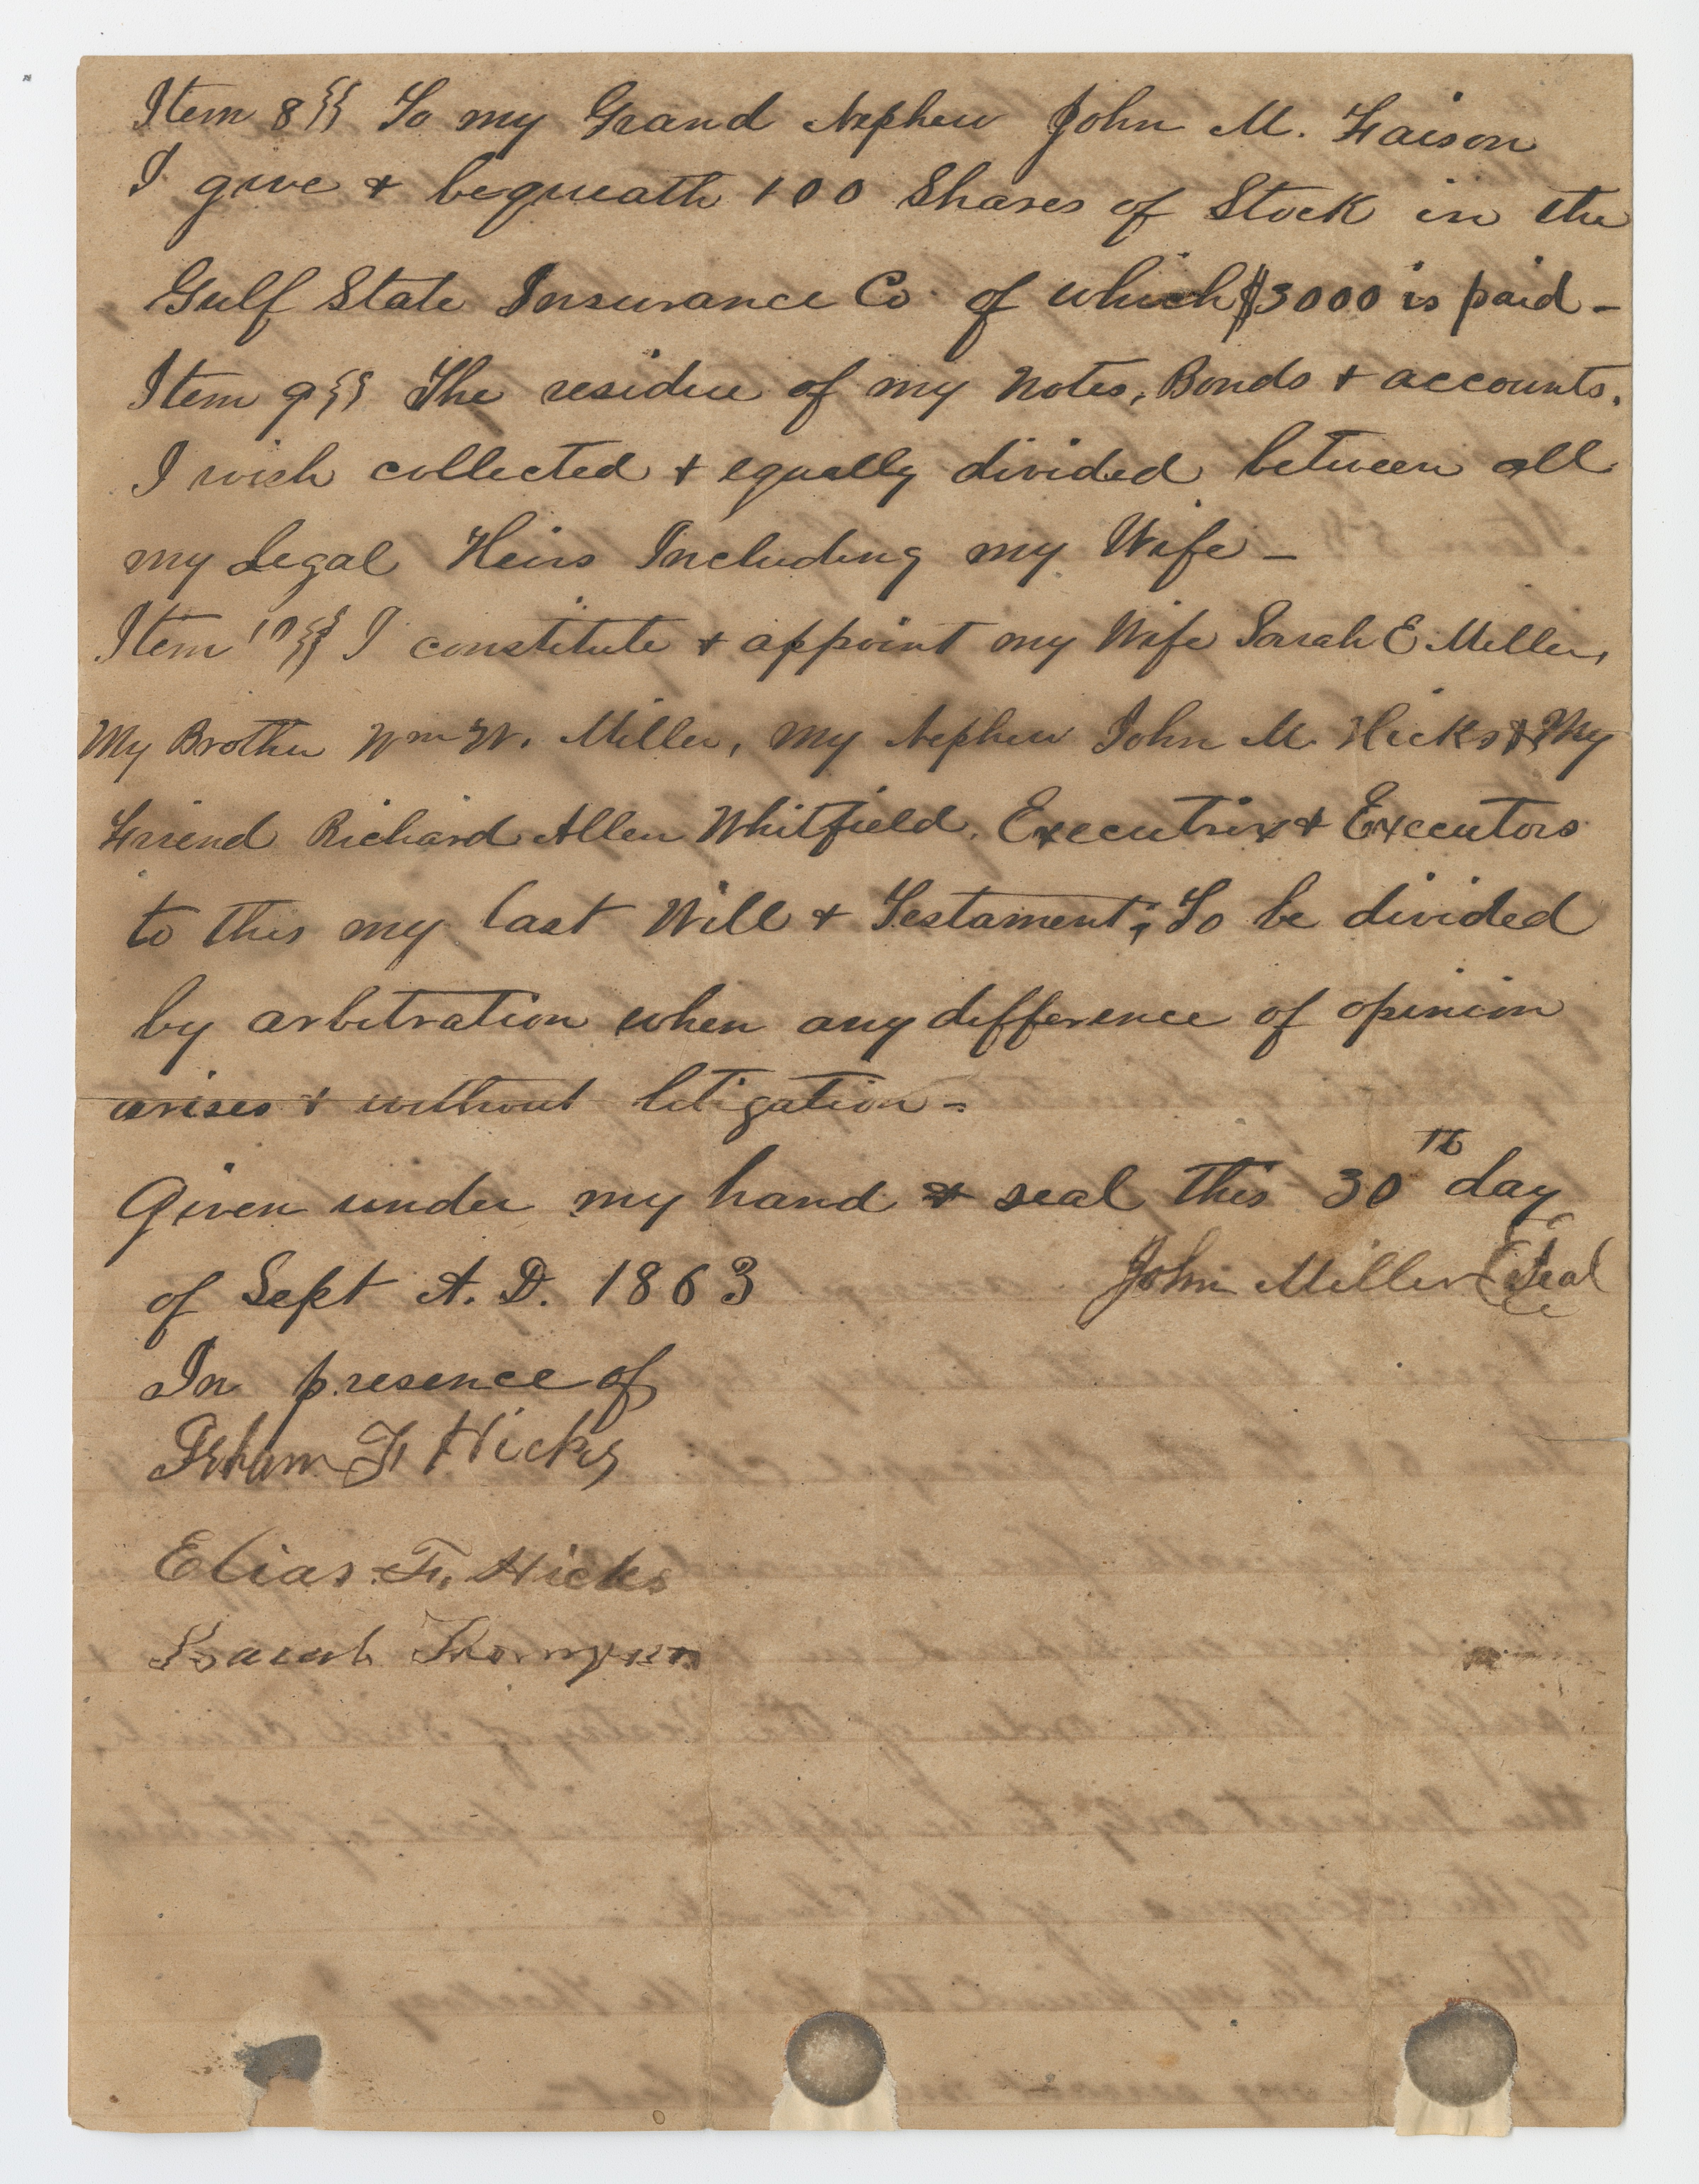 Item 8}} To my Grand Nephew John M. Faison
I give & bequeath 100 Shares of Stock in the
Gulf State Insurance Co. of which $3000 is paid –
Item 9}} The residue of my Notes, Bonds & accounts.
I wish collected & equally divided between all
my Legal Heirs Including my Wife –
Item 10}} I constitute & appoint my Wife Sarah E Miller,
My Brother Wm W. Miller, my Nephew John M. Hicks & My
Friend Richard Allen Whitfield. Executrix & Executors
to this my last Will & Testament; To be divided
by arbitration when any difference of opinion
arises & without litigation –
Given under my hand & seal this 30th day
of Sept A. D. 1863 John Miller {Seal
In presence of
F Hicks
Elias F. Hicks